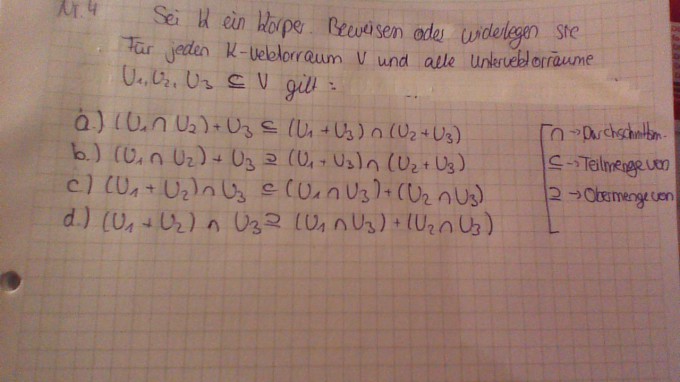 Nr. 4
Sei K ein Körper. Beweisen oder widerlegen sie
Für jeden K-Vektorraum V und alle Untervektorräume
U₁, U₂, U₃ ⊆ V gilt:
a.) (U₁ ∩ U₂) + U₃ ⊆ (U₁ + U₃) ∩ (U₂ + U₃)
b.) (U₁ ∩ U₂) + U₃ ⊇ (U₁ + U₃) ∩ (U₂ + U₃)
c.) (U₁ + U₂) ∩ U₃ ⊆ (U₁ ∩ U₃) + (U₂ ∩ U₃)
d.) (U₁ + U₂) ∩ U₃ ⊇ (U₁ ∩ U₃) + (U₂ ∩ U₃)
∩ → Durchschnittm.
⊆ → Teilmenge von
⊇ → Obermenge von